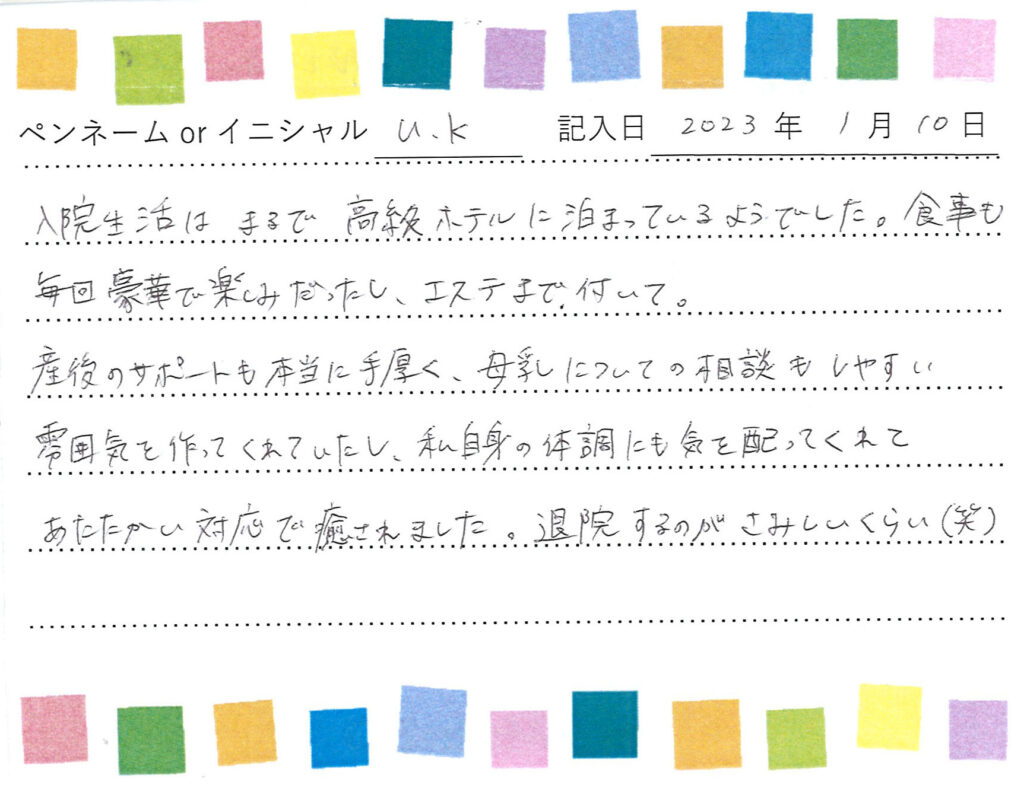 ペンネーム or イニシャル U.K 記入日 2023 年 1 月 10 日
入院生活は まるで 高級ホテルに泊まっているようでした。食事も
毎回豪華で楽しみだったし、エステまで付いて。
産後のサポートも本当に手厚く、母乳についての相談もしやすい
雰囲気を作ってくれていたし、私自身の体調にも気を配ってくれて
あたたかい対応で癒されました。退院するのがさみしいくらい(笑)